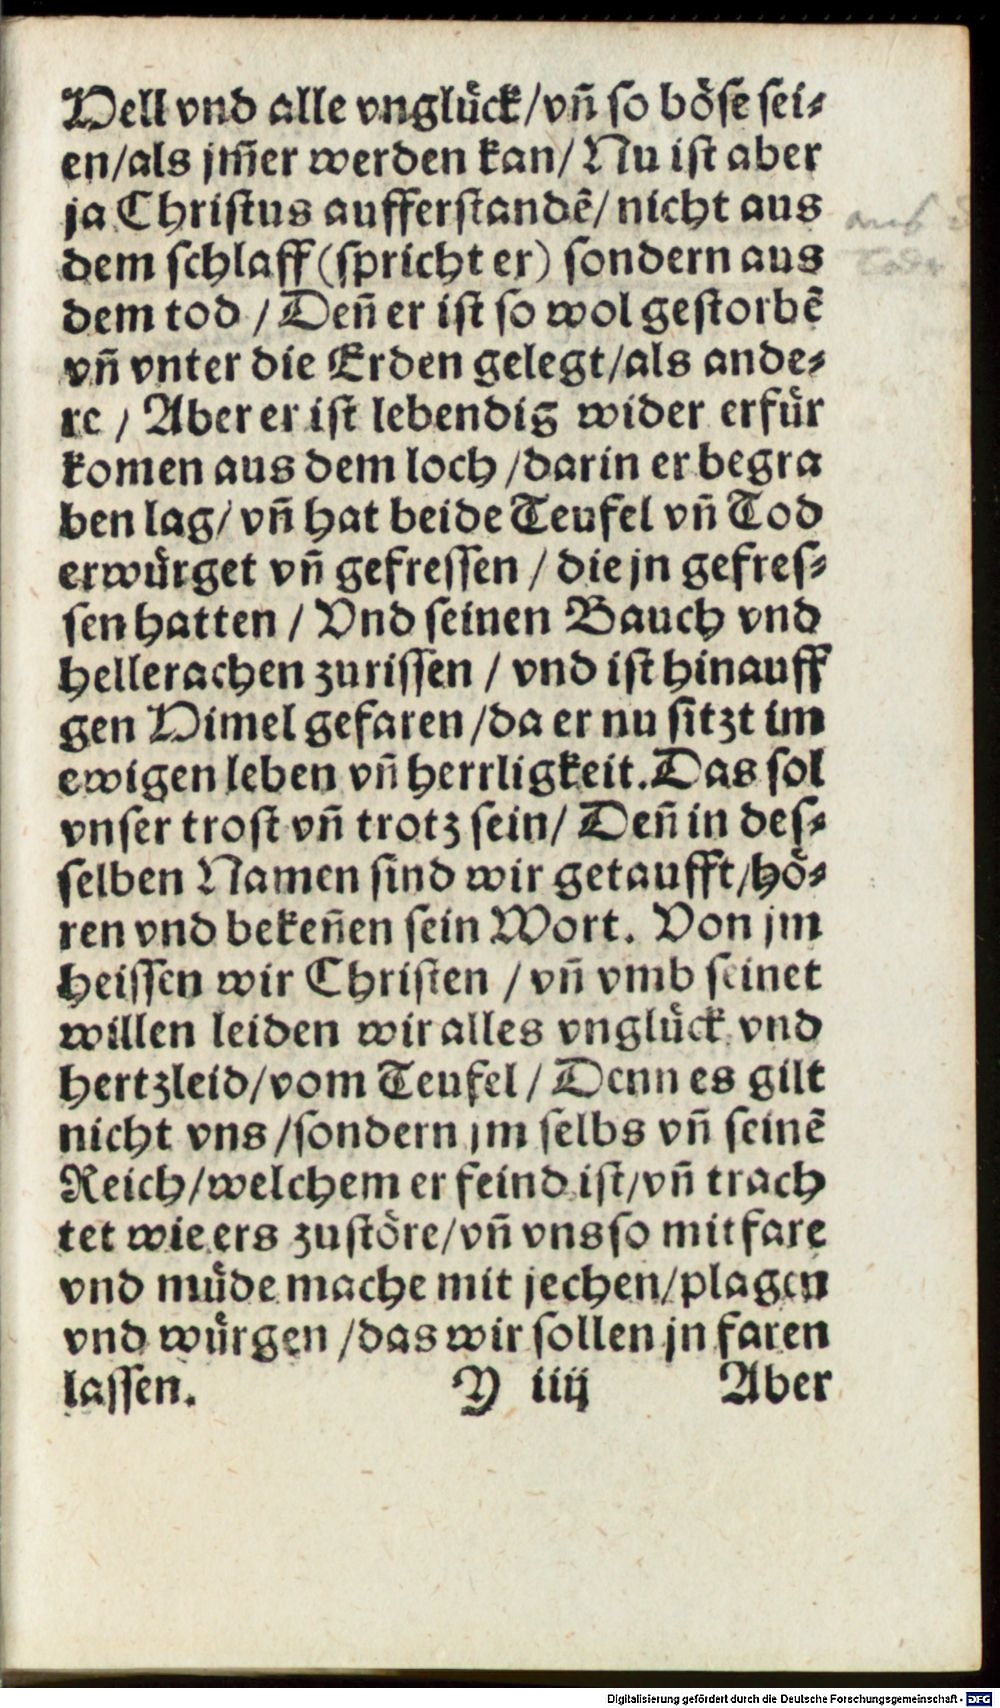 Hell vnd alle vnglück/vñ so böse sei-
en/als jm̃er werden kan/Nu ist aber
ja Christus aufferstandẽ/nicht aus
dem schlaff (spricht er) sondern aus
dem tod / Deñ er ist so wol gestorbẽ
vñ vnter die Erden gelegt/als ande-
re / Aber er ist lebendig wider erfür
komen aus dem loch /darin er begra
ben lag/ vñ hat beide Teufel vñ Tod
erwürget vñ gefressen / die jn gefres-
sen hatten / Vnd seinen Bauch vnd
hellerachen zurissen / vnd ist hinauff
gen Himel gefaren /da er nu sitzt im
ewigen leben vñ herrligkeit. Das sol
vnser trost vñ trotz sein/ Deñ in des-
selben Namen sind wir getaufft/hö-
ren vnd bekeñen sein Wort. Von jm
heissen wir Christen / vñ vmb seinet
willen leiden wir alles vnglück vnd
hertzleid/vom Teufel / Denn es gilt
nicht vns /sondern jm selbs vñ seinẽ
Reich/welchem er feind ist/vñ trach
tet wie ers zustöre/vñ vns so mitfare
vnd müde mache mit jechen/plagen
vnd würgen /das wir sollen jn faren
lassen. Y iiij Aber
aus
Tode
Digitalisierung gefördert durch die Deutsche Forschungsgemeinschaft - DFG